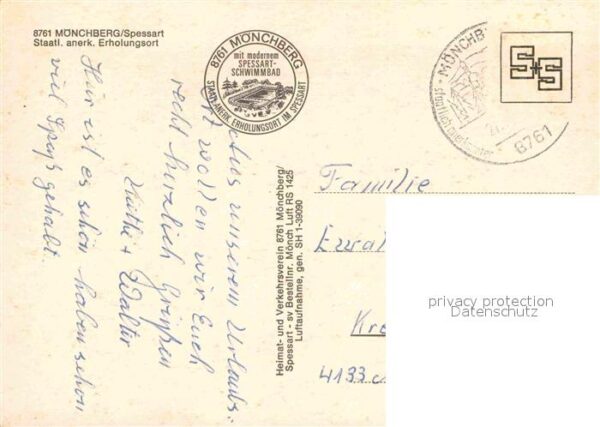 8761 MÖNCHBERG/Spessart
Staatl. anerk. Erholungsort
8761 MÖNCHBERG
mit modernem
SPESSART-
SCHWIMMBAD
STAATL. ANERK. ERHOLUNGSORT IM SPESSART
MÖNCHB
8761
S+S
Aus unserem Urlaubs-
wollen wir Euch
recht herzlich Grüßen
Käthi + Walter
Hier ist es schön haben schon
viel Spaß gehabt.
Heimat- und Verkehrsverein 8761 Mönchberg/
Spessart - sv Bestellnr. Mönch Luft RS 1425
Luftaufnahme, gen. SH 1-39090
Familie
Ewal
Kre
4133
privacy protection
Datenschutz